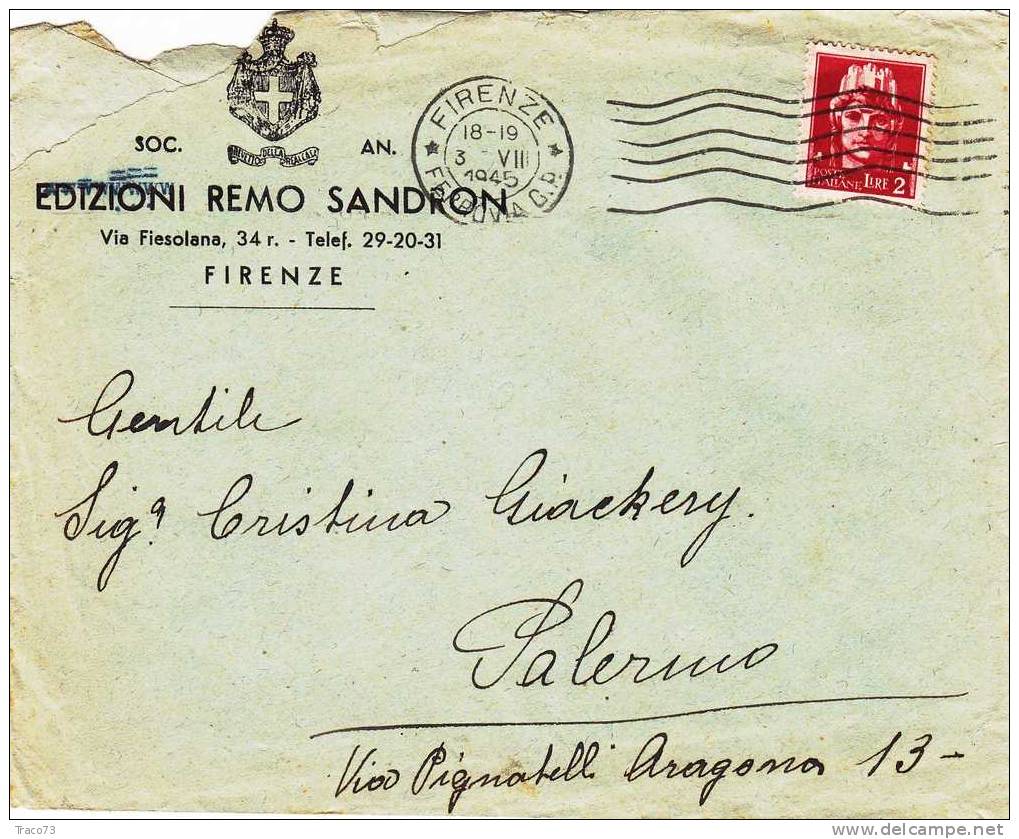 BREVETTO DELLA REAL CASA
SOC. AN.
EDIZIONI REMO SANDRON
Via Fiesolana, 34 r. - Telef. 29-20-31
FIRENZE
FIRENZE
18-19
3 VIII
1945
FERROVIA C.P.
POSTE
ITALIANE LIRE 2
Gentile
Sigª Cristina Giackery.
Palermo
Via Pignatelli Aragona 13-
Traco73
delcampe.net